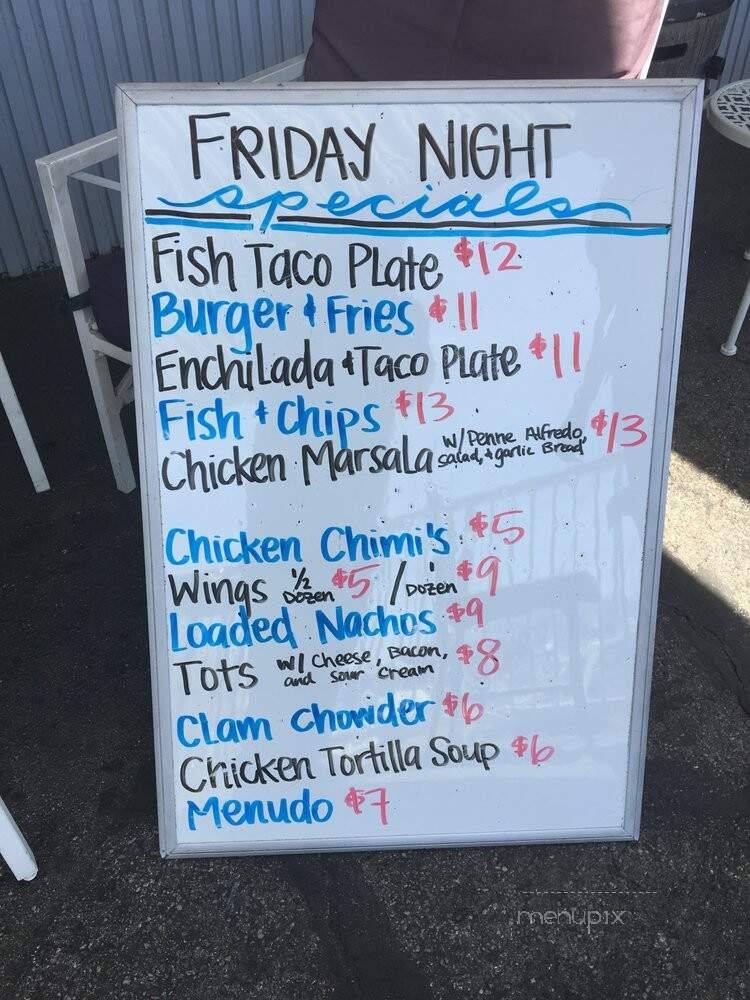 FRIDAY NIGHT
specials
Fish Taco Plate $12
Burger + Fries $11
Enchilada + Taco Plate $11
Fish + Chips $13
Chicken Marsala w/ Penne Alfredo, salad, + garlic Bread $13
Chicken Chimi's $5
Wings 1/2 Dozen $5 / Dozen $9
Loaded Nachos $9
Tots w/ Cheese, Bacon, and sour cream $8
Clam Chowder $6
Chicken Tortilla Soup $6
Menudo $7
menupix